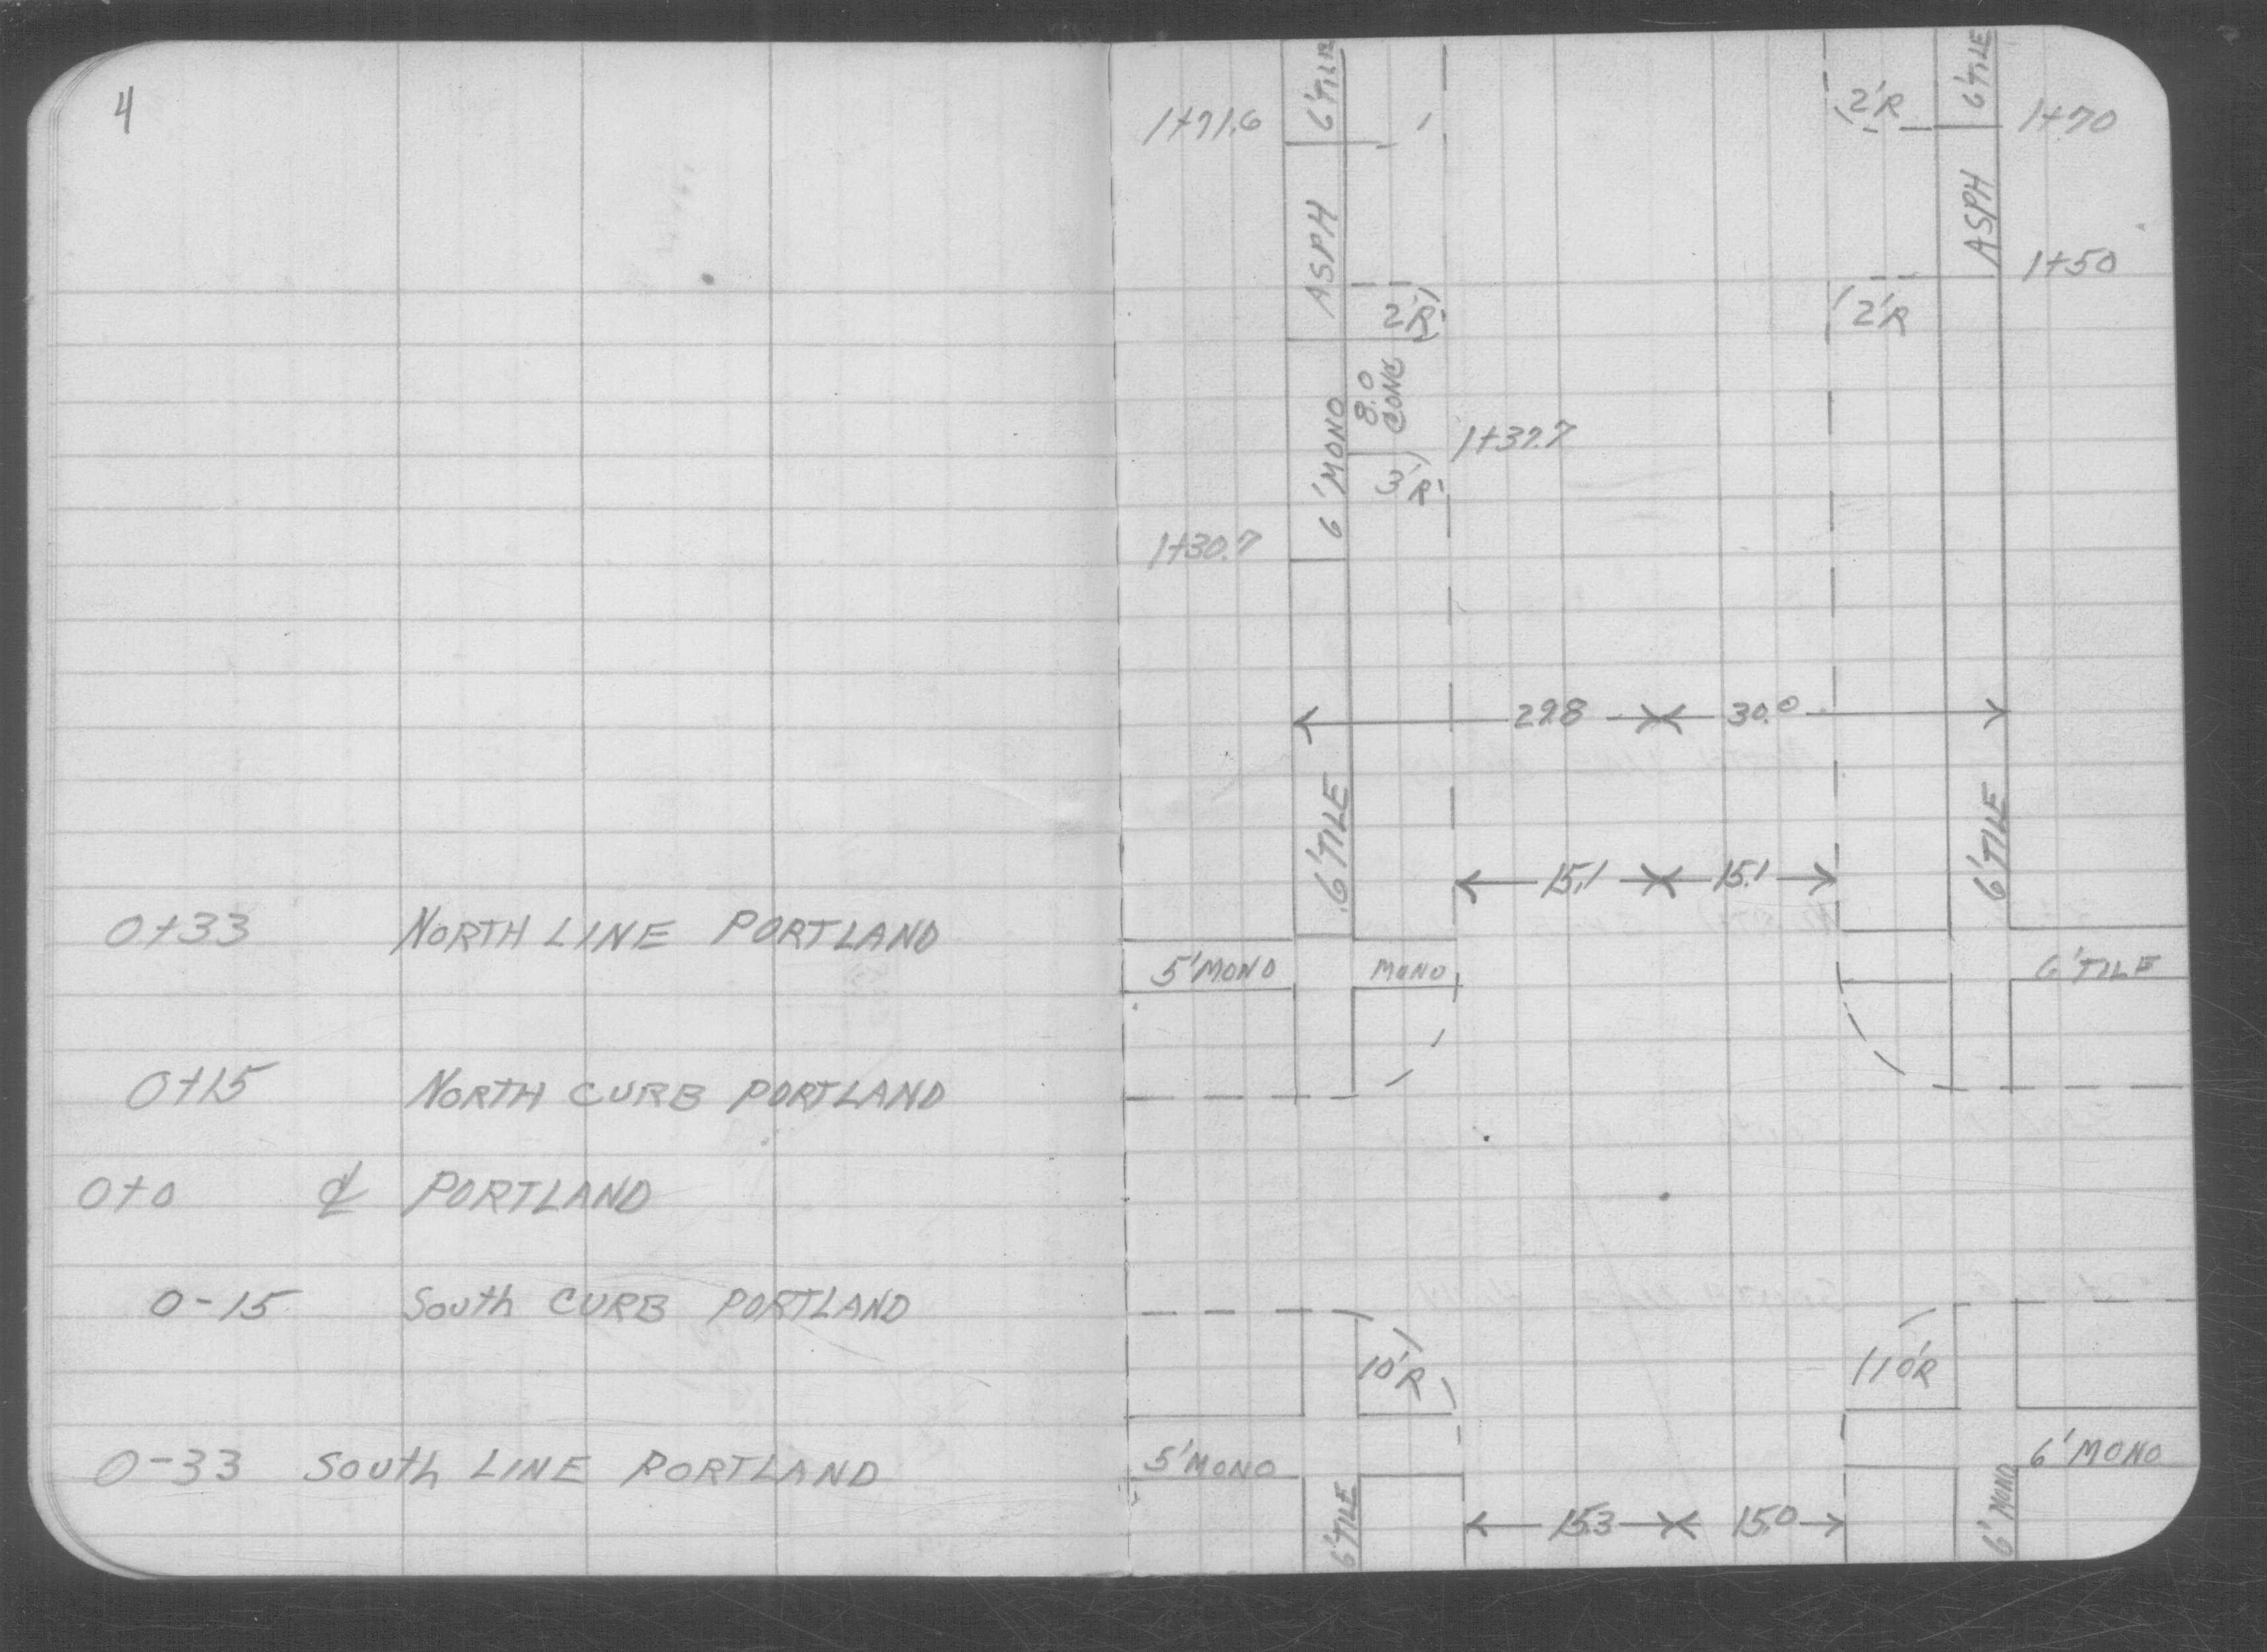 4
0+33 NORTH LINE PORTLAND
0+15 NORTH CURB PORTLAND
0+0 ℄ PORTLAND
0-15 South CURB PORTLAND
0-33 South LINE PORTLAND
1+71.6 6'TILE 2'R 6'TILE 1+70
ASPH ASPH
1+50
2'R 2'R
8.0
CONC
6'MONO 1+37.7
3'R
1+30.7
29.8 30.0
6'TILE 6'TILE
15.1 15.1
5'MONO MONO 6'TILE
10'R 10'R
5'MONO 6'MONO
6'TILE 15.3 15.0 6'MONO